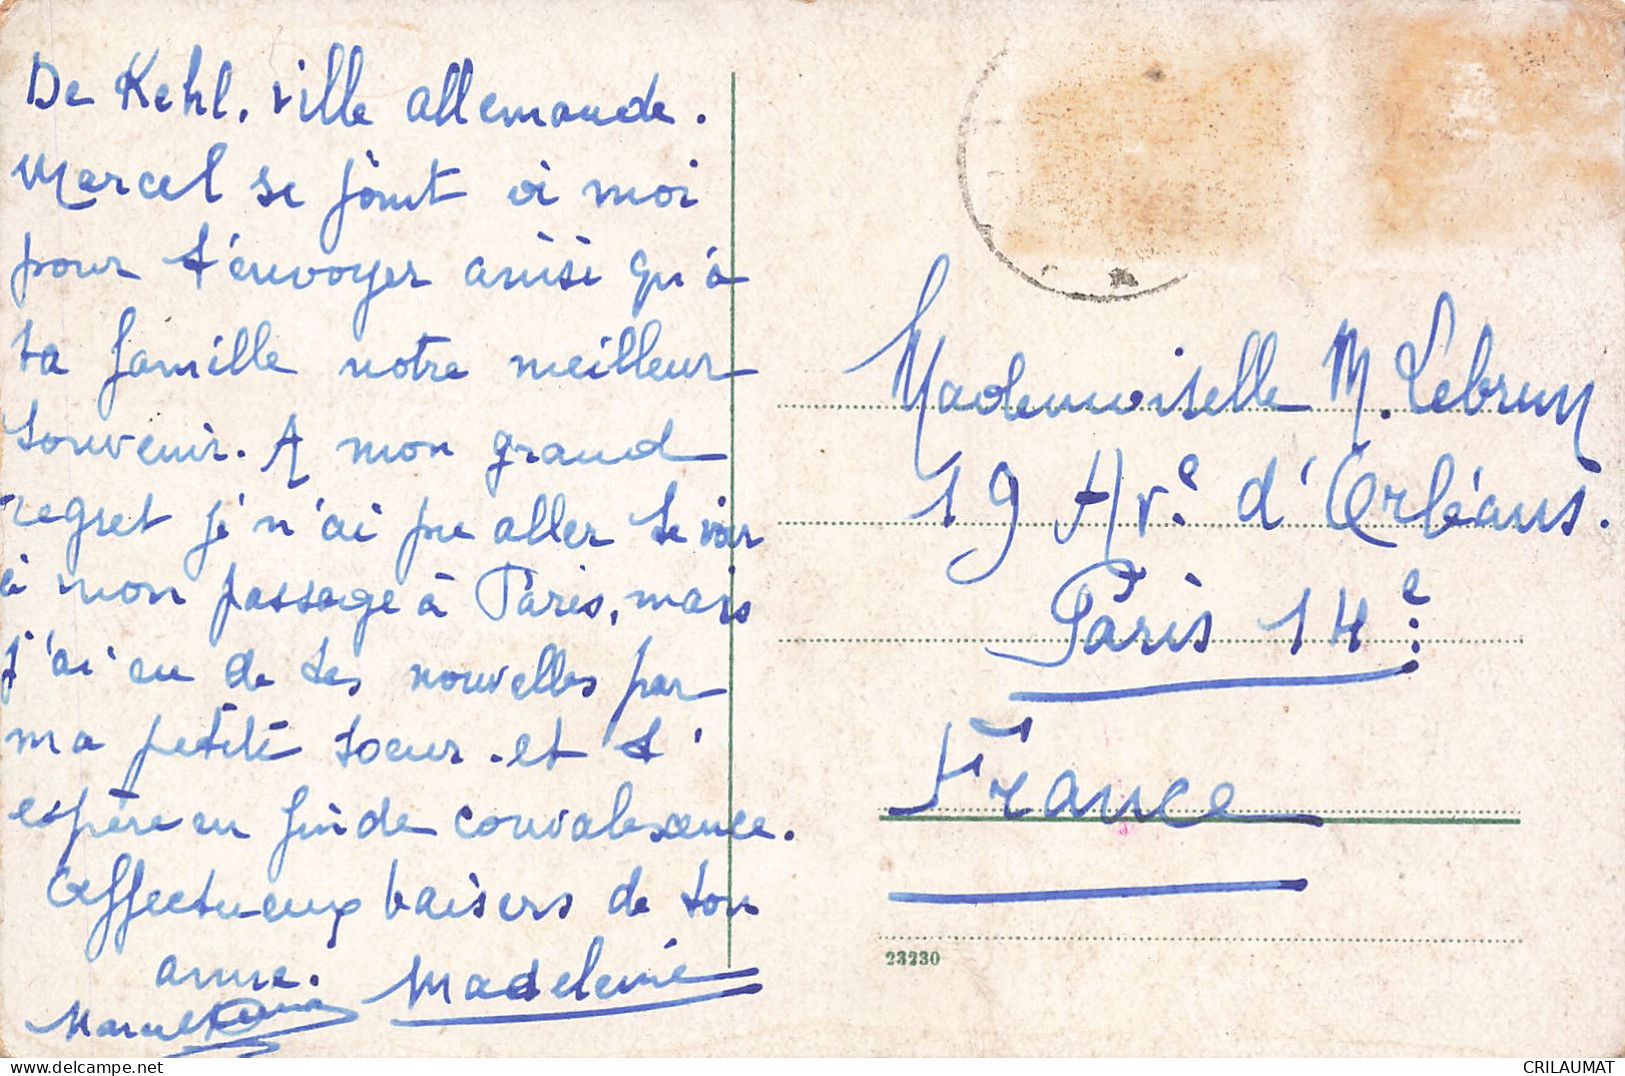 De Kehl, ville allemande.
Marcel se joint à moi
pour t'envoyer ainsi qu'à
ta famille notre meilleur
souvenir. A mon grand
regret je n'ai pu aller te voir
à mon passage à Paris, mais
j'ai eu de tes nouvelles par
ma petite soeur. et t'
espère en fin de convalescence.
Affectueux baisers de ton
amie. Madeleine
Marcel
Mademoiselle M. Lebrun
19 Ave. d'Orléans.
Paris 14e.
France
23230
CRILAUMAT